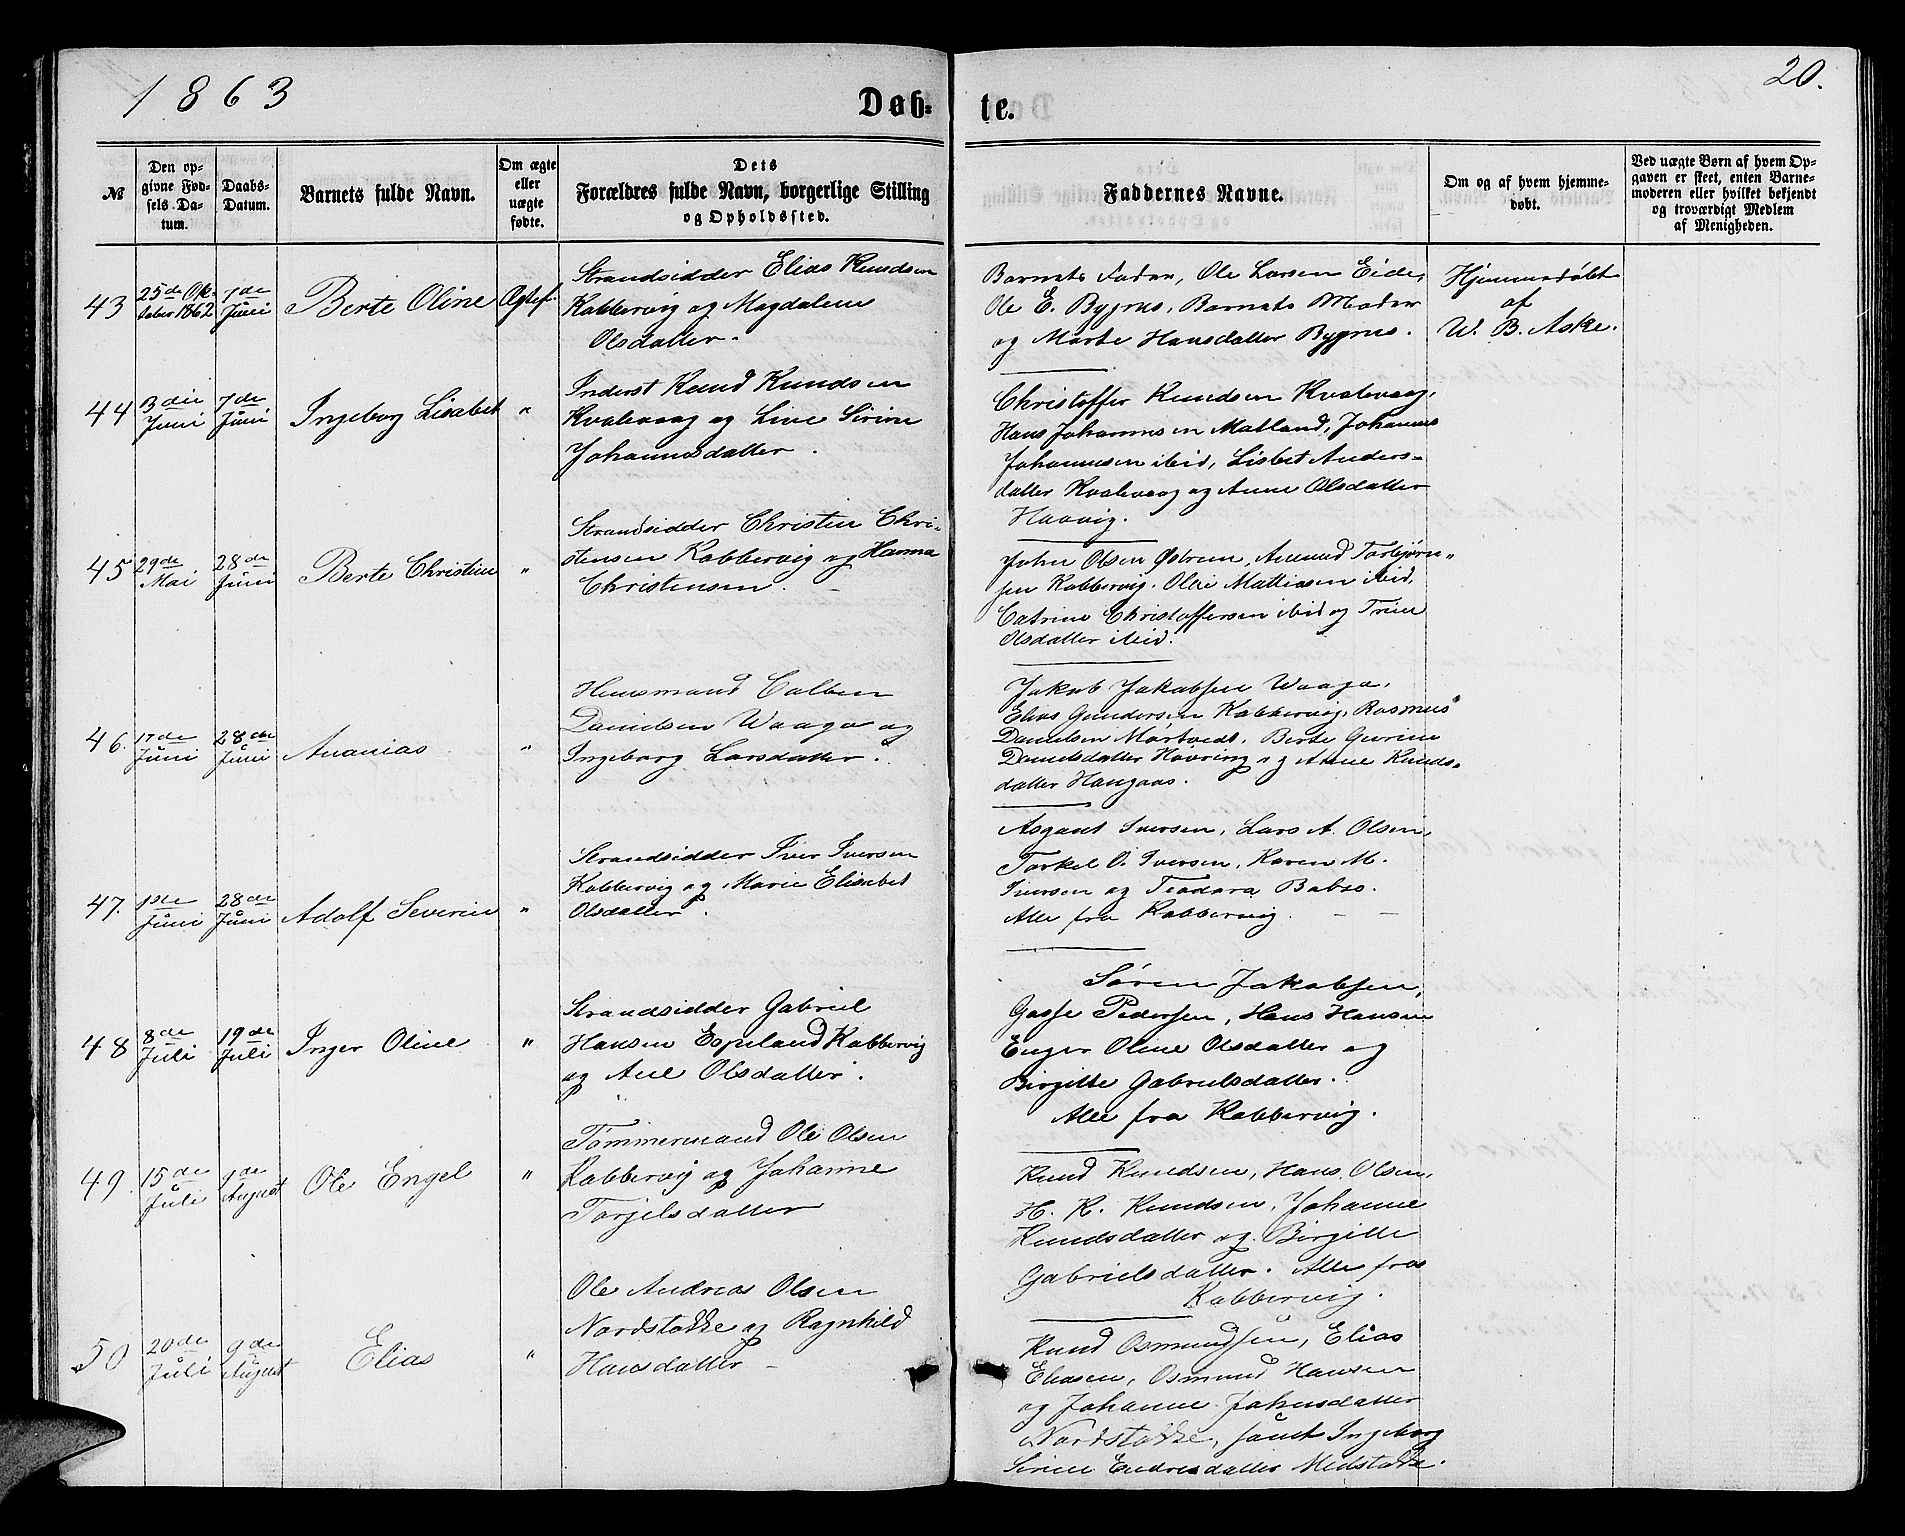 1863
Døb-
te.
20.
№
Den op-
givne Fød-
sels Da-
tum.
Daabs-
Datum.
Barnets fulde Navn.
Om ægte
eller
uægte
fødte.
Dets
Forældres fulde Navn, borgerlige Stilling
og Opholdssted.
Faddernes Navne.
Om og af hvem hjemme-
døbt.
Ved uægte Børn af hvem Op-
gaven er skeet, enten Barne-
moderen eller hvilket bekjendt
og troværdigt Medlem
af Menigheden.
43
25de Ok-
tober 1862
7de
Juni
Berte Oline
Ægtef.
Strandsidder Elias Knudsen
Kobbervig og Magdalene
Olsdatter.
Barnets Fader, Ole Larsen Eide,
Ole E. Bygnes, Barnets Moder
og Marte Hansdatter Bygnes.
Hjemmedøbt
af
W. B. Aske.
44
3die
Juni
7de
Juni
Ingeborg Lisabet
"
Inderst Knud Knudsen
Kvalevaag og Line Sirine
Johannesdatter.
Christoffer Knudsen Kvalevaag,
Hans Johannesen Matland, Johannes
Johannesen ibid, Lisbet Anders-
datter Kvalevaag og Anne Olsdatter
Haavig.
45
29de
Mai
28de
Juni
Berte Christine
"
Strandsidder Christen Chri-
stensen Kobbervig og Hanna
Christensen.
John Olsen Østrem, Amund Torbjørn-
sen Kobbervig, Olei Mathiasen ibid,
Catrine Christoffersen ibid og Trine
Olsdatter ibid.
46.
17de
Juni
28de
Juni
Ananias
"
Huusmand Colben
Danielsen Waaga og
Ingeborg Larsdatter.
Jakob Jakobsen Waaga,
Elias Gundersen Kobbervig, Rasmus
Danielsen Mortvedt, Berte Gurine
Danielsdatter Høvring og Anne Knuds-
datter Haugaas.
47.
1ste
Juni
28de
Juni
Adolf Severin
"
Strandsidder Iver Iversen
Kobbervig og Marie Elisabet
Olsdatter.
Asgaut Iversen, Lars A. Olsen,
Torkel O. Iversen, Karen M.
Iversen og Teodora Bobso.
Alle fra Kobbervig.
48
8de
Juli
19de
Juli
Inger Oline
"
Strandsidder Gabriel
Hansen Espeland Kobbervig
og Ane Olsdatter.
Søren Jakobsen,
Gosse Pedersen, Hans Hansen
Enger Oline Olsdatter og
Birgitte Gabrielsdatter.
Alle fra Kobbervig.
49.
15de
Juli
9de
August
Ole Engel
"
Tømmermand Ole Olsen
Kobbervig og Johanne
Torjelsdatter
Knud Knudsen, Hans Olsen,
H. K. Knudsen, Johanne
Knudsdatter og Birgitte
Gabrielsdatter. Alle fra
Kobbervig.
50
20de
Juli
9de
August
Elias
"
Ole Andreas Olsen
Nordstokke og Ragnhild
Hansdatter
Knud Osmundsen, Elias
Eliasen, Osmund Hansen
og Johanne Johnsdatter
Nordstokke, samt Ingeborg
Serine Endresdatter Midstokke.